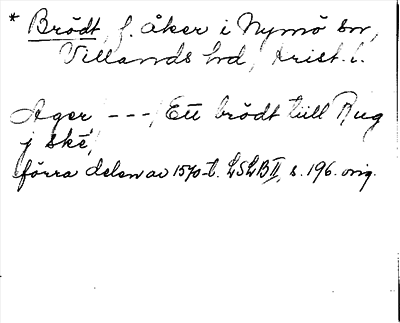 * Brödt, f. åker i Nymö sn,
Villands hd, Krist. l.
Ager / --- / Ett brödt till Rug
j ské /
förra delen av 1570-t. LSLB II, s. 196. orig.